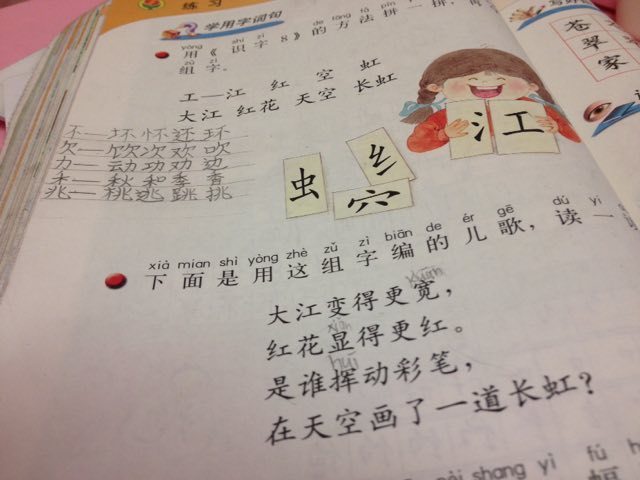 练习
学用字词句
yòng shí zì de fāng fǎ
用《识字8》的方法拼一拼，再
zǔ zì
组字。
工—江 红 空 虹
大江 红花 天空 长虹
不—坏怀还环
欠—饮次欢吹
力—动功劝边
禾—秋和季香
兆—桃逃跳挑
江
虫
纟
穴
xià miàn shì yòng zhè zǔ zì biān de ér gē dú yi
下面是用这组字编的儿歌，读一
大江变得更宽，
xiǎn
红花显得更红。
huī
是谁挥动彩笔，
在天空画了一道长虹？
shang yì fú
苍
翠
家